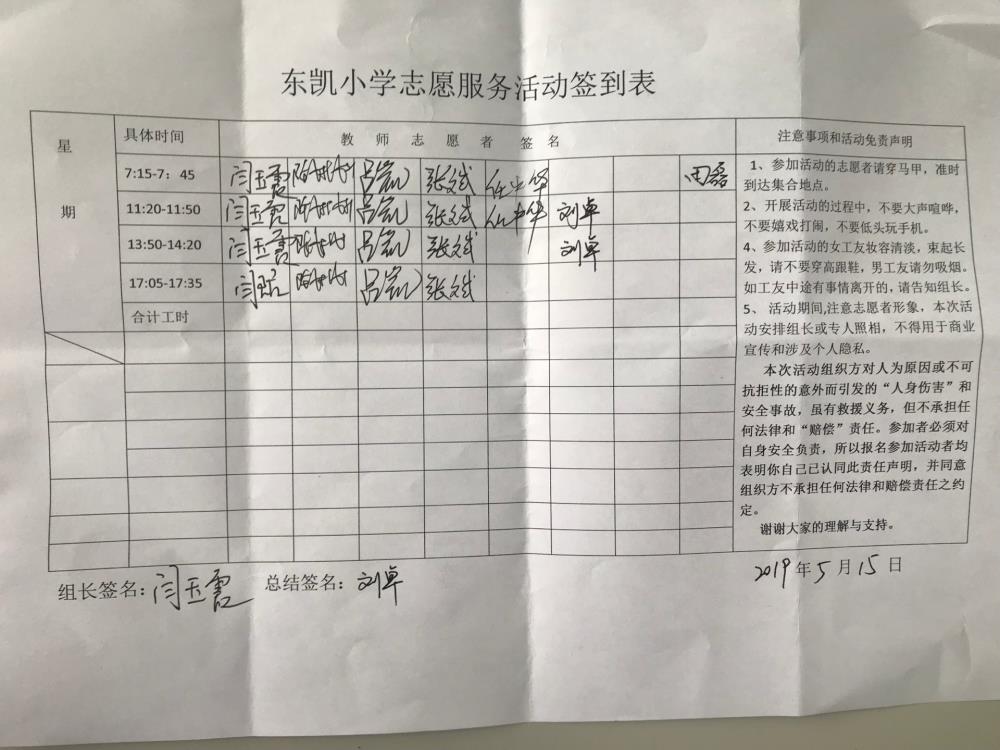 东凯小学志愿服务活动签到表
星期
具体时间 教师志愿者签名 注意事项和活动免责声明
7:15-7：45 闫玉霞 吕岚 张文斌 任中华 田磊
11:20-11:50 闫玉霞 吕岚 张文斌 任中华 刘卓
13:50-14:20 闫玉霞 吕岚 张文斌 刘卓
17:05-17:35 闫玉霞 吕岚 张文斌
合计工时
1、参加活动的志愿者请穿马甲，准时
到达集合地点。
2、开展活动的过程中，不要大声喧哗，
不要嬉戏打闹，不要低头玩手机。
4、参加活动的女工友妆容清淡，束起长
发，请不要穿高跟鞋，男工友请勿吸烟。
如工友中途有事情离开的，请告知组长。
5、活动期间,注意志愿者形象，本次活
动安排组长或专人照相，不得用于商业
宣传和涉及个人隐私。
本次活动组织方对人为原因或不可
抗拒性的意外而引发的“人身伤害”和
安全事故，虽有救援义务，但不承担任
何法律和“赔偿”责任。参加者必须对
自身安全负责，所以报名参加活动者均
表明你自己已认同此责任声明，并同意
组织方不承担任何法律和赔偿责任之约
定。
谢谢大家的理解与支持。
组长签名：闫玉霞 总结签名：刘卓
2019年5月15日